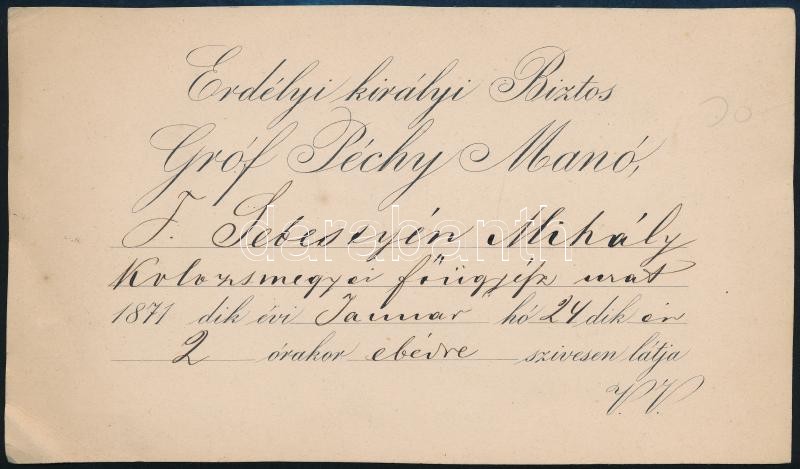 Erdélyi királyi Biztos
Gróf Péchy Manó,
T. Sebestyén Mihály
Kolozsmegyei főügyész urat
1871 dik évi Januar hó 24 dik én
2 órakor ebédre szivesen látja
V. V.
darabanth